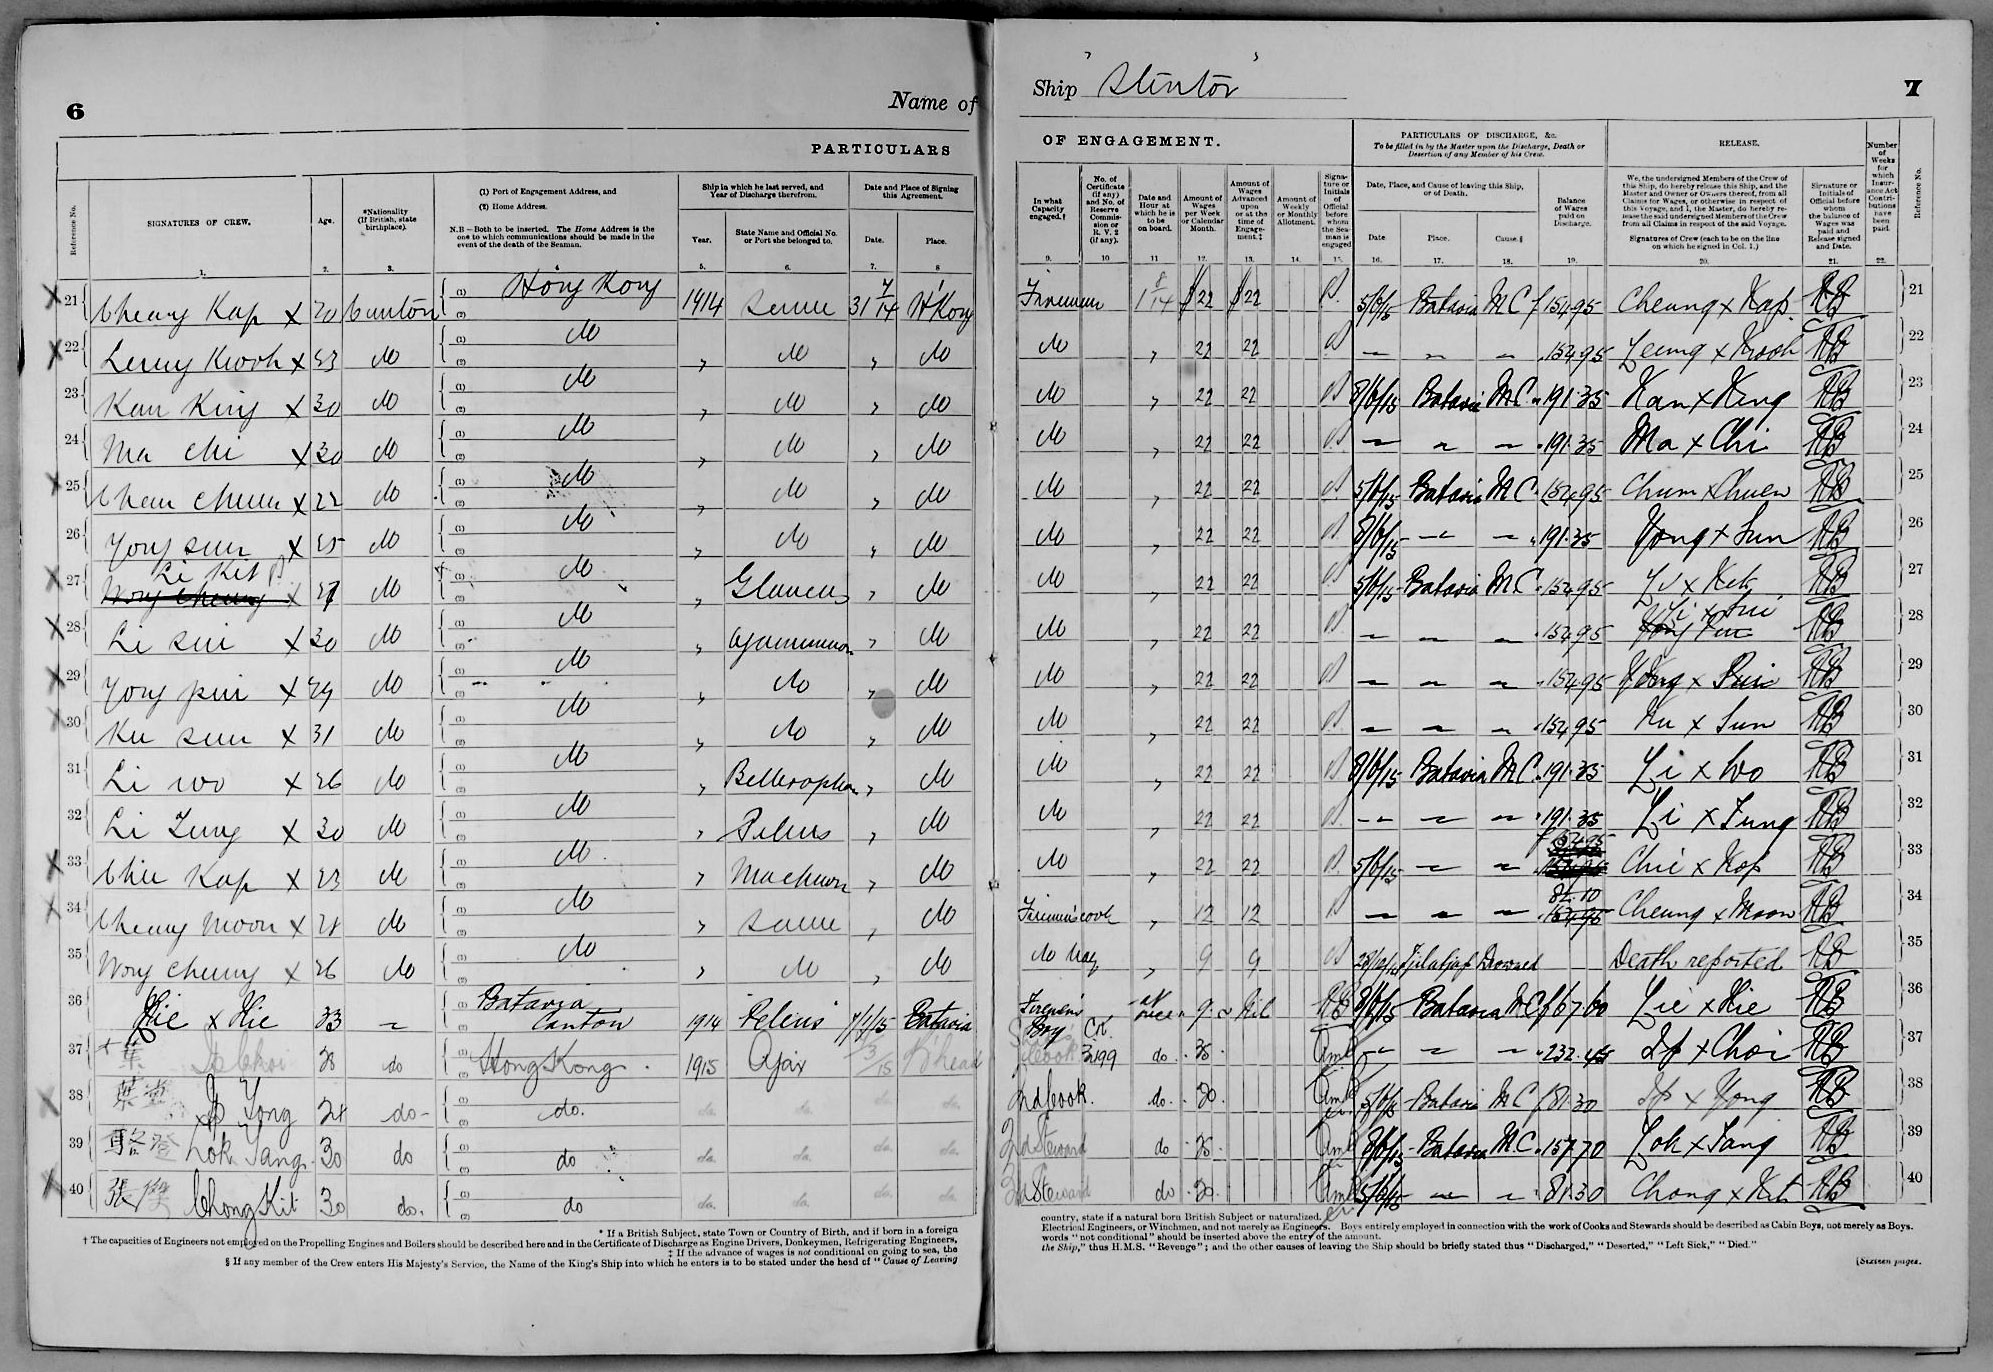 6
Name of
PARTICULARS
Reference No.
SIGNATURES OF CREW.
Age.
*Nationality (If British, state birthplace).
(1) Port of Engagement Address, and
(2) Home Address.
N.B—Both to be inserted. The Home Address is the one to which communications should be made in the event of the death of the Seaman.
Ship in which he last served, and Year of Discharge therefrom.
Year.
State Name and Official No. or Port she belonged to.
Date and Place of Signing this Agreement.
Date.
Place.
1. 2. 3. 4 5. 6. 7. 8
21 Cheung Kap x 20 Canton Hong Kong 1914 Same 31 7/14 H'Kong
22 Leung Kwok x 23 do do " do " do
23 Kan King x 30 do do " do " do
24 Ma Chi x 30 do do " do " do
25 Chan Chuen x 22 do do " do " do
26 Yong Sun x 25 do do " do " do
27 Li Kit Wong Cheung x do do " Glaucus " do
28 Li Sui x 30 do do " Agamemnon " do
29 Yong Pui x 29 do do " do " do
30 Ku Sun x 31 do do " do " do
31 Li Wo x 26 do do " Bellerophon " do
32 Li Tung x 30 do do " Peleus " do
33 Chiu Kap x 23 do do " Machaon " do
34 Cheung Moon x do do " Same " do
35 Wong Cheung x 26 do do " do " do
36 Lie x Hie 33 " Batavia Canton 1914 Peleus 7/1/15 Batavia
37 葉 Ip Choi do Hong Kong 1915 Ajax 3/15 B'head
38 葉 Ip Yong 24 do do. do. do. do. do.
39 駱登 Lok Tang 30 do do do. do. do. do.
40 張 Chong Kit 30 do. do do. do. do. do.
* If a British Subject, state Town or Country of Birth, and if born in a foreign
† The capacities of Engineers not employed on the Propelling Engines and Boilers should be described here and in the Certificate of Discharge as Engine Drivers, Donkeymen, Refrigerating Engineers,
‡ If the advance of wages is not conditional on going to sea, the
§ If any member of the Crew enters His Majesty's Service, the Name of the King's Ship into which he enters is to be stated under the head of "Cause of Leaving
Ship "Stentor"
7
OF ENGAGEMENT.
PARTICULARS OF DISCHARGE, &c.
To be filled in by the Master upon the Discharge, Death or Desertion of any Member of his Crew.
RELEASE.
In what Capacity engaged.†
No. of Certificate (if any) and No. of Reserve Commission or R. V. 2 (if any).
Date and Hour at which he is to be on board.
Amount of Wages per Week or Calendar Month.
Amount of Wages Advanced upon or at the time of Engagement.‡
Amount of Weekly or Monthly Allotment.
Signature or Initials of Official before whom the Seaman is engaged
Date, Place, and Cause of leaving this Ship, or of Death.
Date.
Place.
Cause.§
Balance of Wages paid on Discharge.
We, the undersigned Members of the Crew of this Ship, do hereby release this Ship, and the Master and Owner or Owners thereof, from all Claims for Wages, or otherwise in respect of this Voyage, and I, the Master, do hereby release the said undersigned Members of the Crew from all Claims in respect of the said Voyage.
Signatures of Crew (each to be on the line on which he signed in Col. 1.)
Signature or Initials of Official before whom the balance of Wages was paid and Release signed and Date.
Number of Weeks for which Insurance Act Contributions have been paid.
Reference No.
9. 10 11 12. 13. 14. 15. 16. 17. 18. 19. 20. 21. 22.
Fireman 1 8/14 $22 $22 5/6/15 Batavia M.C. f 154.95 Cheung x Kap 21
do " 22 22 " " " 154.95 Leung x Kwok 22
do " 22 22 8/6/15 Batavia M.C. " 191.35 Kan x King 23
do " 22 22 " " " 191.35 Ma x Chi 24
do " 22 22 5/6/15 Batavia M.C. 154.95 Chum x Chuen 25
do " 22 22 8/6/15 " " 191.35 Yong x Sun 26
do " 22 22 5/6/15 Batavia M.C. 154.95 Li x Kit 27
do " 22 22 " " " 154.95 Li x Sui 28
do " 22 22 " " " 154.95 Yong x Pui 29
do " 22 22 " " " 154.95 Ku x Sun 30
do " 22 22 8/6/15 Batavia M.C. 191.35 Li x Wo 31
do " 22 22 " " " 191.35 Li x Tung 32
do " 22 22 5/6/15 " " 154.95 Chiu x Kop 33
Firemen's cook " 12 12 " " " 82.10 154.95 Cheung x Moon 34
do " 9 9 28/12/14 Tjilatjap Drowned Death reported 35
Firemen's Boy at once 9 Nil 8/6/15 Batavia M.C. f 67.60 Lie x Hie 36
Cook do " " " 232.45 Ip x Choi 37
2nd Cook. do 20. 5/6/15 Batavia M.C. f 81.30 Ip x Yong 38
2nd Steward do 8/6/15 Batavia M.C. 157.70 Lok x Tang 39
3rd Steward do 20. 5/6/15 " " 81.30 Chong x Kit 40
country, state if a natural born British Subject or naturalized.
Electrical Engineers, or Winchmen, and not merely as Engineers. Boys entirely employed in connection with the work of Cooks and Stewards should be described as Cabin Boys, not merely as Boys.
words "not conditional" should be inserted above the entry of the amount.
the Ship," thus H.M.S. "Revenge"; and the other causes of leaving the Ship should be briefly stated thus "Discharged," "Deserted," "Left Sick," "Died."
[Sixteen pages.